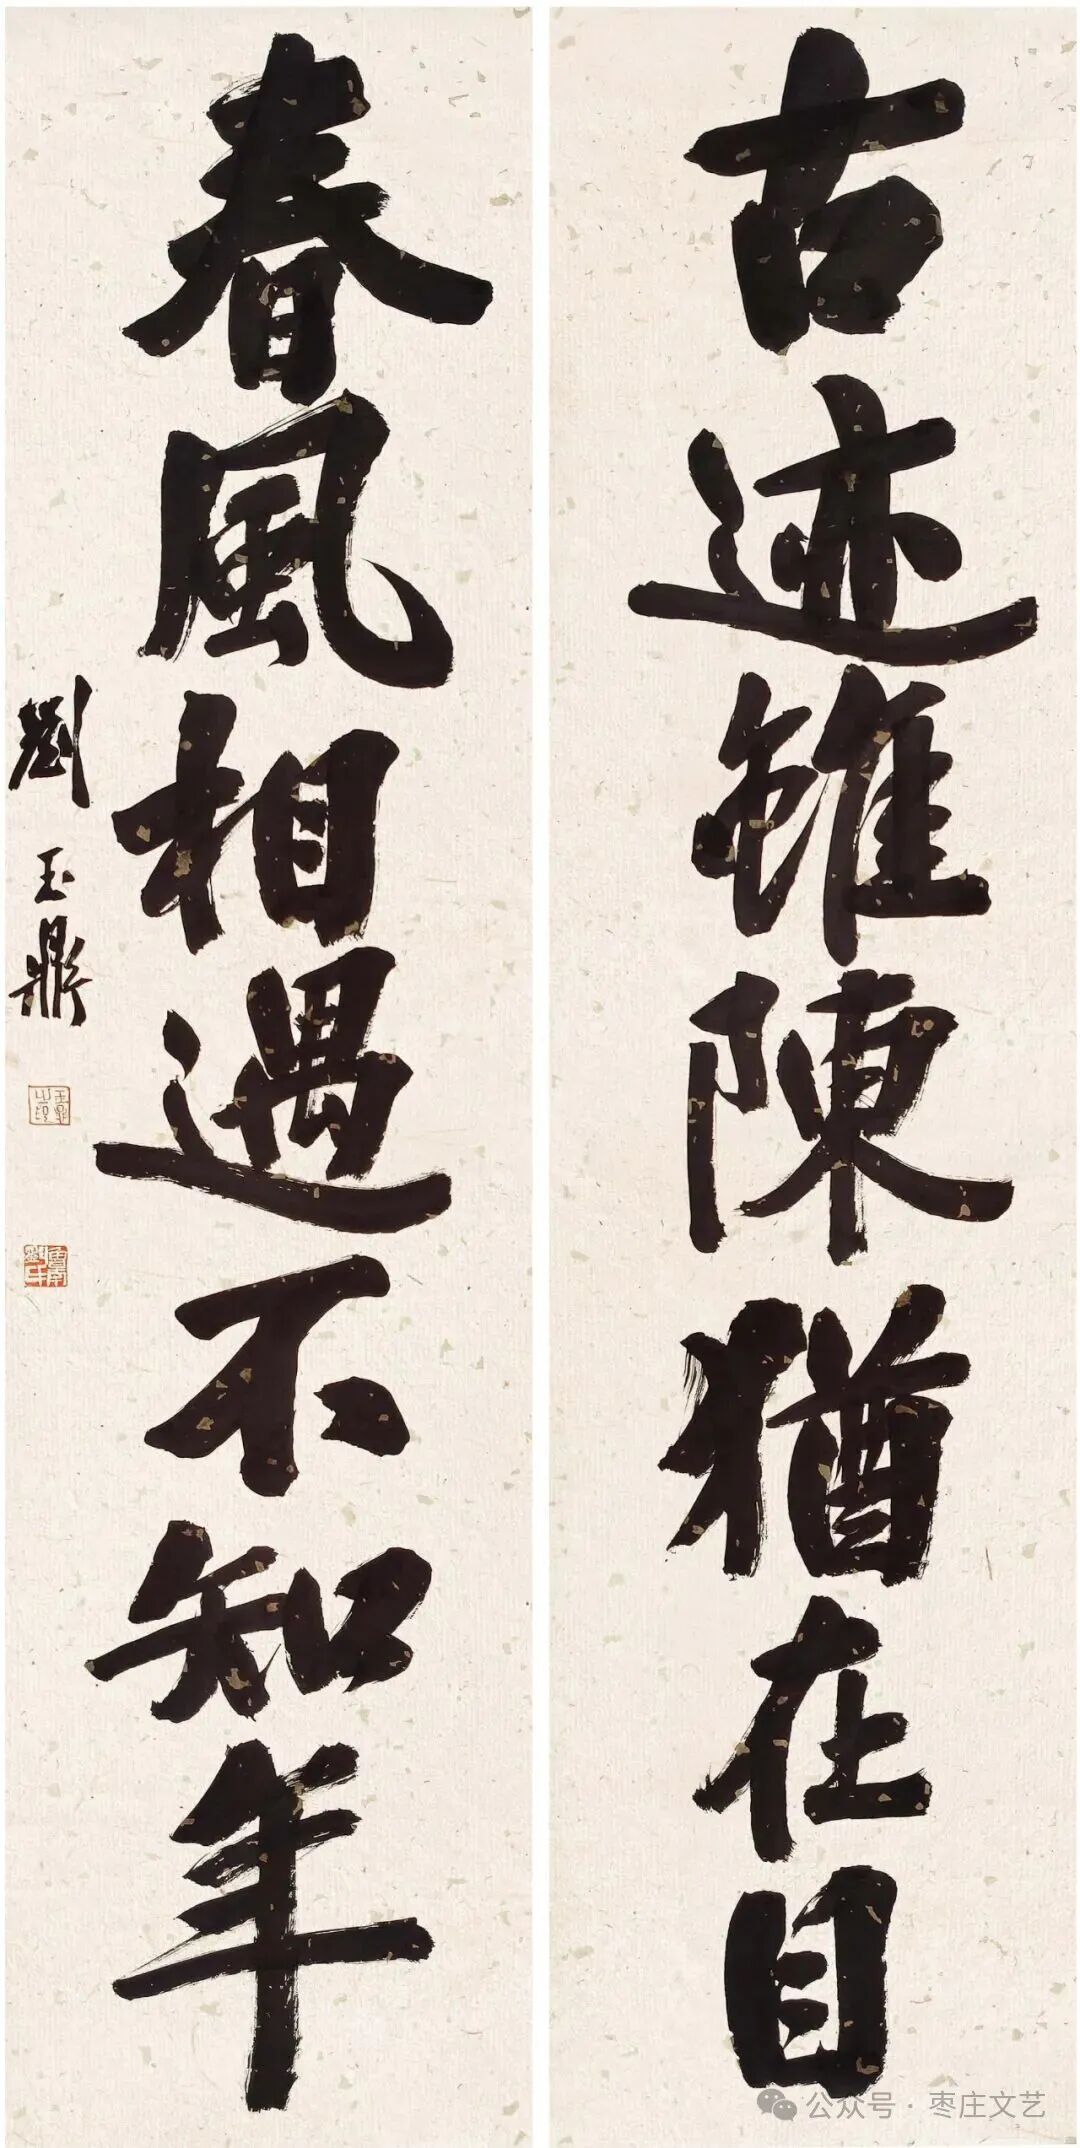 古迹雖陳猶在目
春風相遇不知年
劉玉鼎
公众号·枣庄文艺